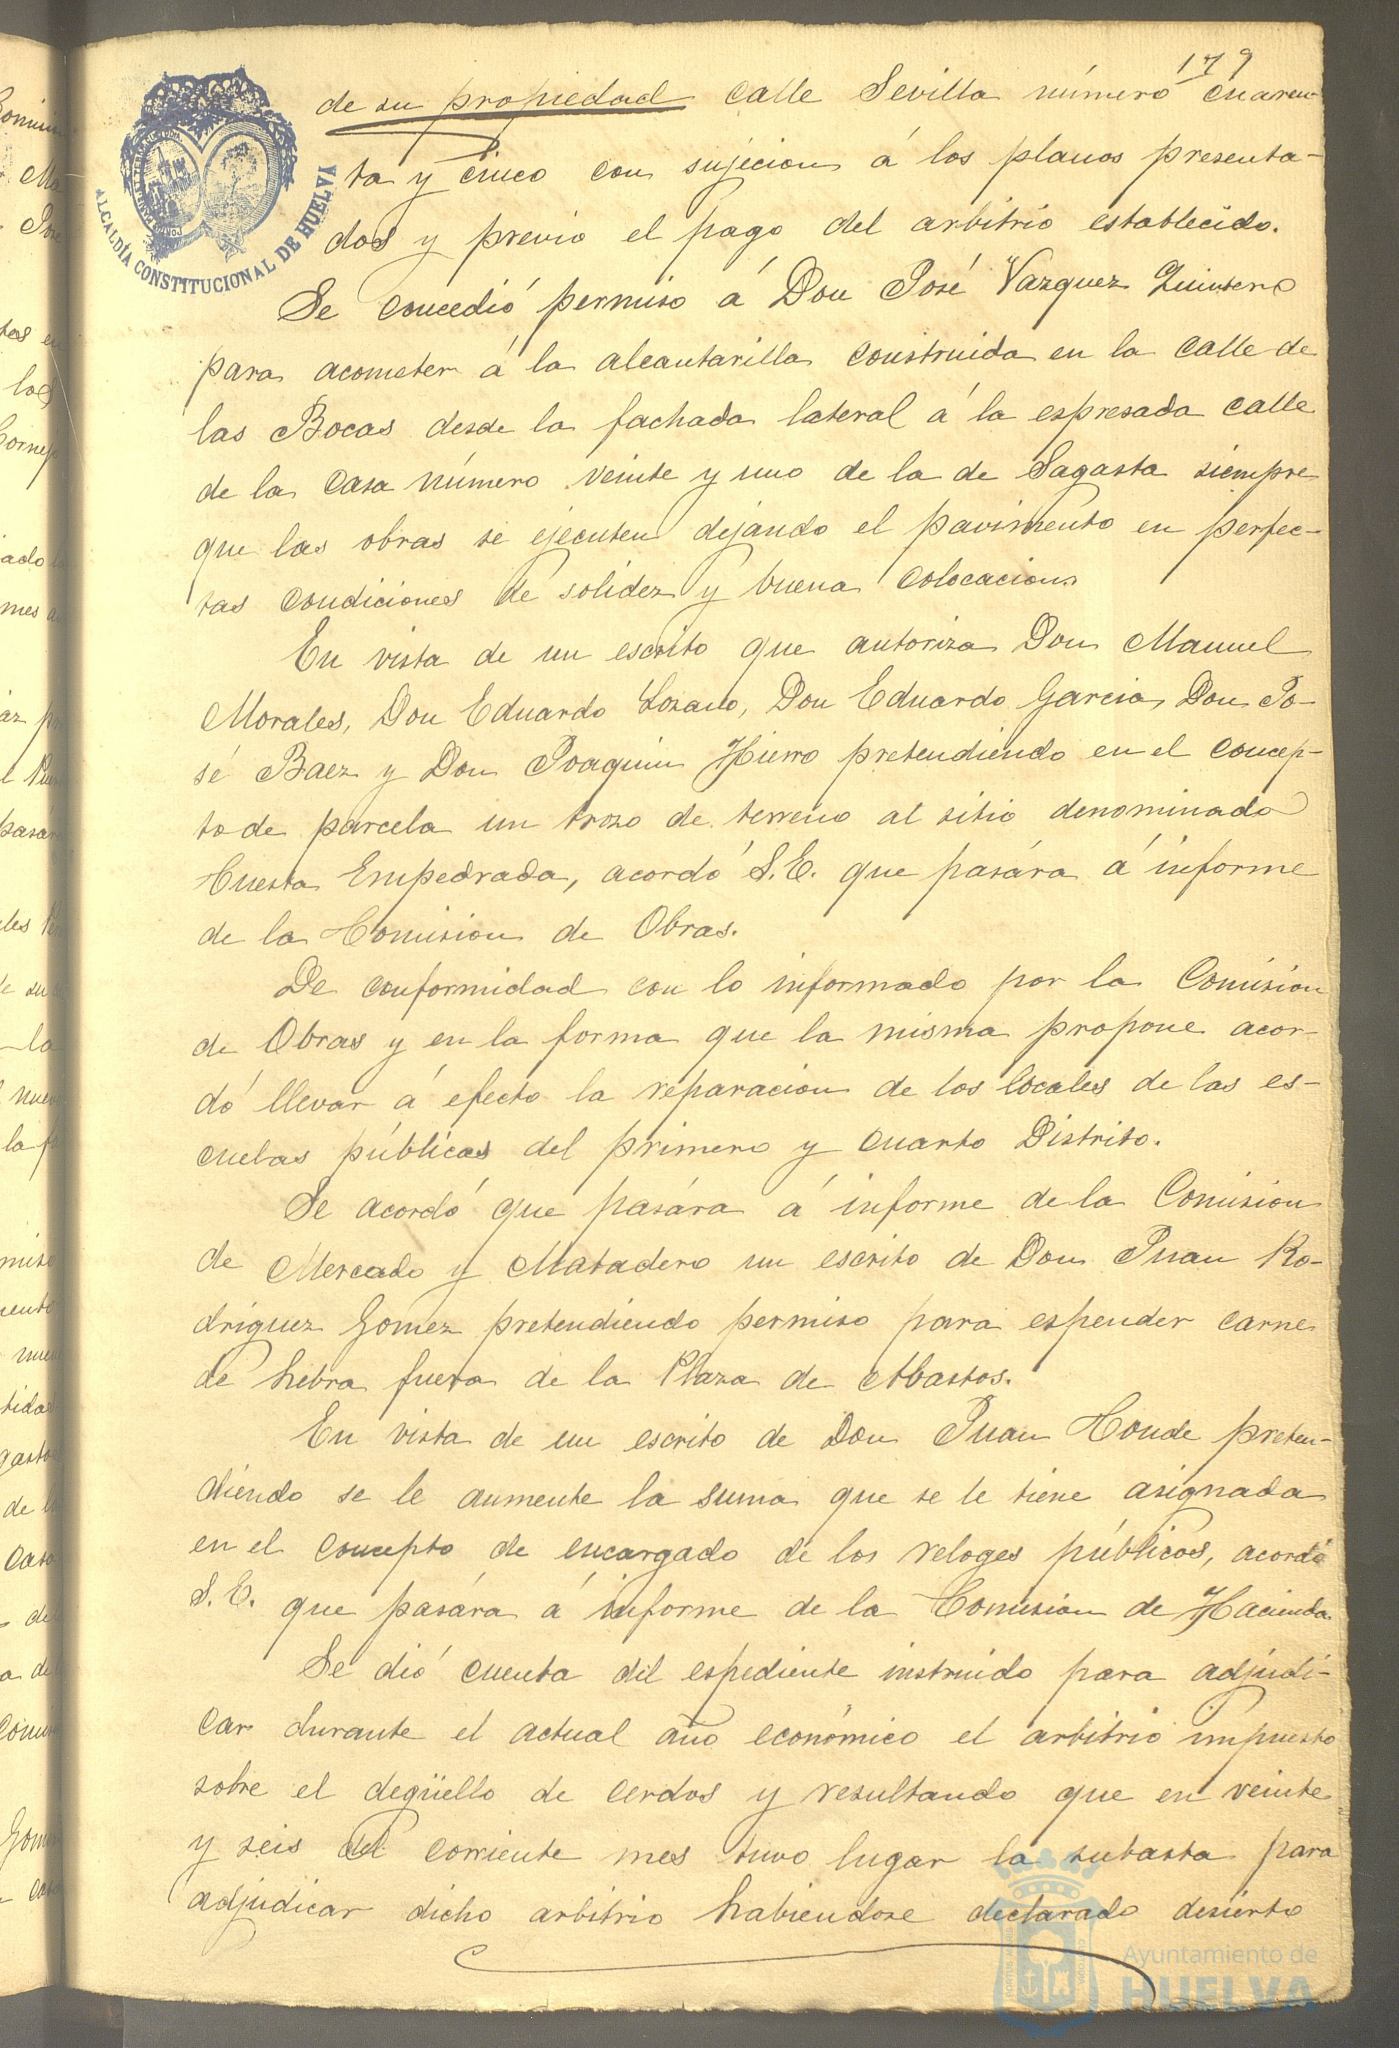 179
de su propiedad calle Sevilla número cuaren-
ta y cinco con sujecion á los planos presenta-
dos y previo el pago del arbitrio establecido.
Se concedió permiso á Don José Vazquez Quintero
para acometer á la alcantarilla construida en la calle de
las Bocas desde la fachada lateral á la espresada calle
de la casa número veinte y uno de la de Sagasta siempre
que las obras se ejecuten dejando el pavimento en perfec-
tas condiciones de solidez y buena colocacion.
En vista de un escrito que autoriza Don Manuel
Morales, Don Eduardo Lozano, Don Eduardo Garcia, Don Jo-
sé Baez y Don Joaquin Hierro pretendiendo en el concep-
to de parcela un trozo de terreno al sitio denominado
Cuesta Empedrada, acordó S.E. que pasára á informe
de la Comision de Obras.
De conformidad con lo informado por la Comision
de Obras y en la forma que la misma propone acor-
dó llevar á efecto la reparacion de los locales de las es-
cuelas públicas del primero y cuarto Distrito.
Se acordó que pasára á informe de la Comision
de Mercado y Matadero un escrito de Don Juan Ro-
driguez Gomez pretendiendo permiso para espender carne
de hebra fuera de la Plaza de Abastos.
En vista de un escrito de Don Juan Conde preten-
diendo se le aumente la suma que se le tiene asignada
en el concepto de encargado de los reloges públicos, acordó
S. E. que pasára á informe de la Comision de Hacienda.
Se dió cuenta del espediente instruido para adjudi-
car durante el actual año económico el arbitrio impuesto
sobre el degüello de cerdos y resultando que en veinte
y seis del corriente mes tuvo lugar la subasta para
adjudicar dicho arbitrio habiendose declarado desierto
ALCALDÍA CONSTITUCIONAL DE HUELVA
Ayuntamiento de
HUELVA